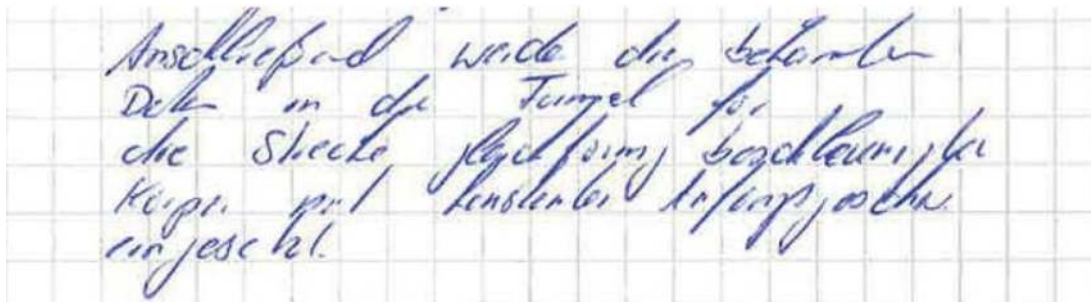 Anschließend werden die bekannten
Daten in die Formel für
die Strecke gleichförmig beschleunigter
Körper mit konstanter Anfangsgeschw.
eingesetzt.